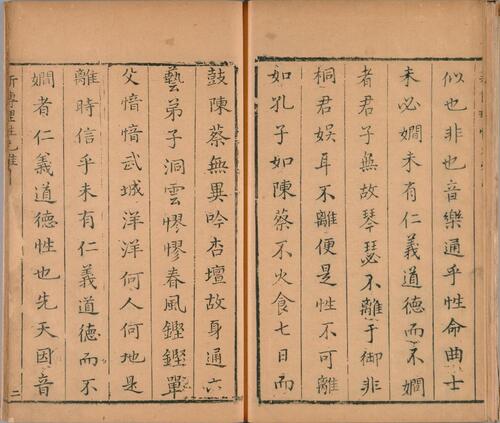 似也非也音樂通乎性命曲士
未必嫺未有仁義道德而不嫺
者君子無故琴瑟不離于御非
桐君娛耳不離便是性不可離
如孔子如陳蔡不火食七日而
鼓陳蔡無異吟杏壇故身通六
藝弟子洞雲憀憀春風鏗鏗單
父愔愔武城洋洋何人何地是
離時信乎未有仁義道德而不
嫺者仁義道德性也先天因音
新傳理性元雅
二